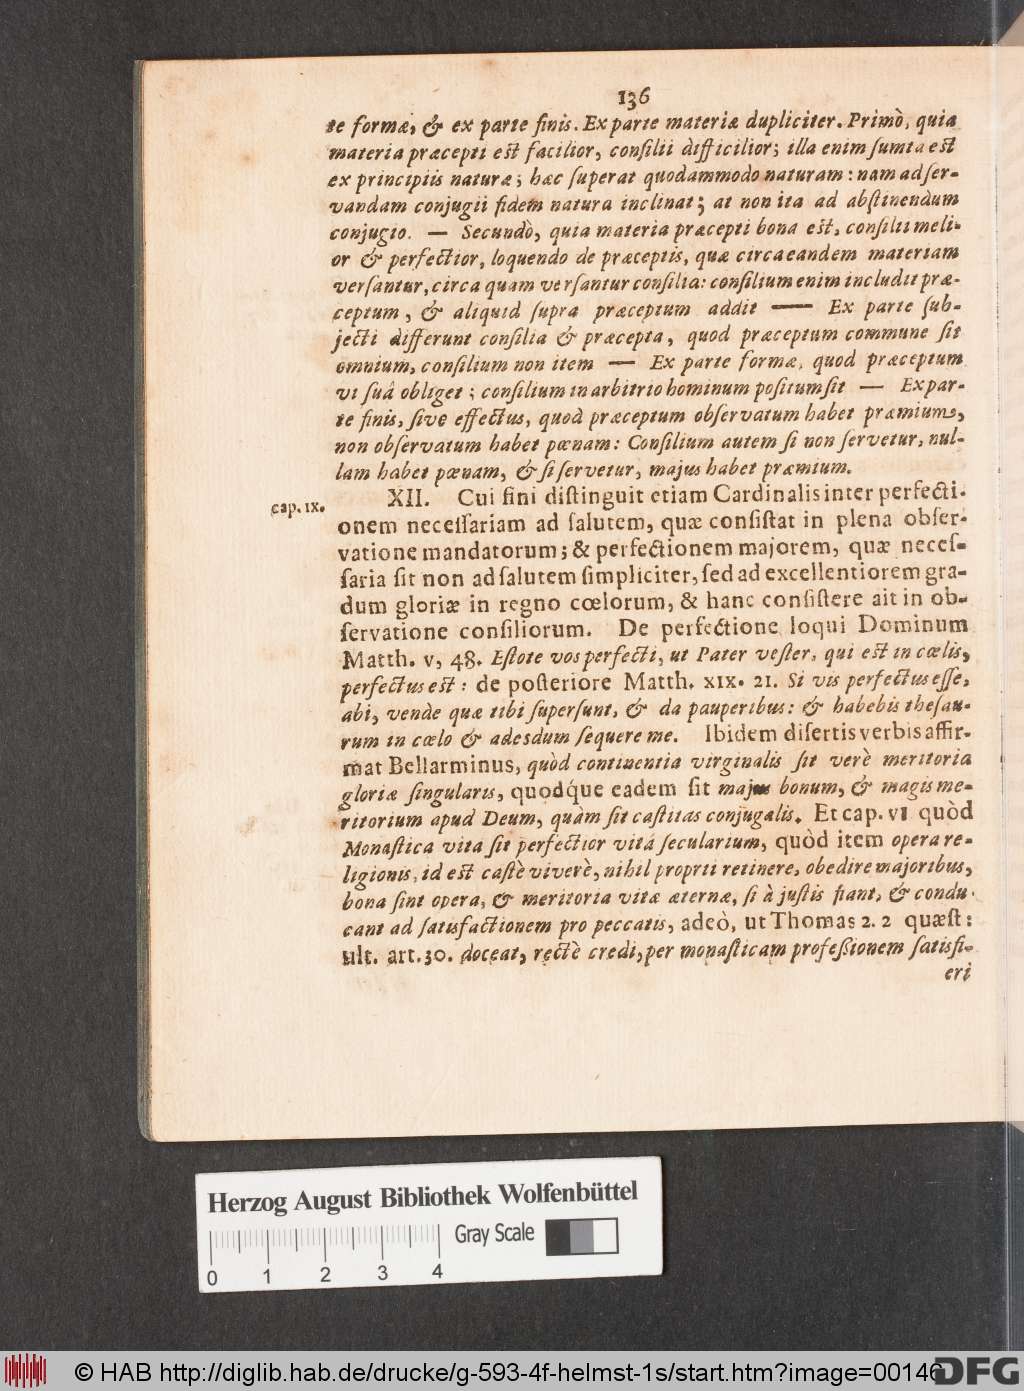 136
te formæ, & ex parte finis. Ex parte materiæ dupliciter. Primò, quia
materia præcepti est facilior, consilii difficilior; illa enim sumta est
ex principiis naturæ; hæc superat quodammodo naturam: nam ad ser-
vandam conjugii fidem natura inclinat; at non ita ad abstinendum
conjugio. — Secundò, quia materia præcepti bona est, consilii meli-
or & perfectior, loquendo de præceptis, quæ circa eandem materiam
versantur, circa quam versantur consilia: consilium enim includit præ-
ceptum, & aliquid supra præceptum addit — Ex parte sub-
jecti differunt consilia & præcepta, quod præceptum commune sit
omnium, consilium non item — Ex parte formæ, quod præceptum
vi suâ obliget; consilium in arbitrio hominum positum sit — Ex par-
te finis, sive effectus, quod præceptum observatum habet præmium,
non observatum habet pœnam: Consilium autem si non servetur, nul-
lam habet pœnam, & si servetur, majus habet præmium.
cap. IX.
XII. Cui fini distinguit etiam Cardinalis inter perfecti-
onem necessariam ad salutem, quæ consistat in plena obser-
vatione mandatorum; & perfectionem majorem, quæ neces-
saria sit non ad salutem simpliciter, sed ad excellentiorem gra-
dum gloriæ in regno cœlorum, & hanc consistere ait in ob-
servatione consiliorum. De perfectione loqui Dominum
Matth. V, 48. Estote vos perfecti, ut Pater vester, qui est in cœlis,
perfectus est: de posteriore Matth. XIX. 21. Si vis perfectus esse,
abi, vende quæ tibi supersunt, & da pauperibus: & habebis thesau-
rum in cœlo & adesdum sequere me. Ibidem disertis verbis affir-
mat Bellarminus, quòd continentia virginalis sit verè meritoria
gloriæ singularis, quodq́ue eadem sit majus bonum, & magis me-
ritorium apud Deum, quàm sit castitas conjugalis. Et cap. VI quòd
Monastica vita sit perfectior vitâ secularium, quòd item opera re-
ligionis, id est castè viverè, nihil proprii retinere, obedire majoribus,
bona sint opera, & meritoria vitæ æternæ, si à justis fiant, & condu-
cant ad satisfactionem pro peccatis, adeò, ut Thomas 2. 2 quæst:
ult. art. 30. doceat, rectè credi, per monasticam professionem satisfi-
eri
Herzog August Bibliothek Wolfenbüttel
Gray Scale
0 1 2 3 4
© HAB http://diglib.hab.de/drucke/g-593-4f-helmst-1s/start.htm?image=00146
DFG